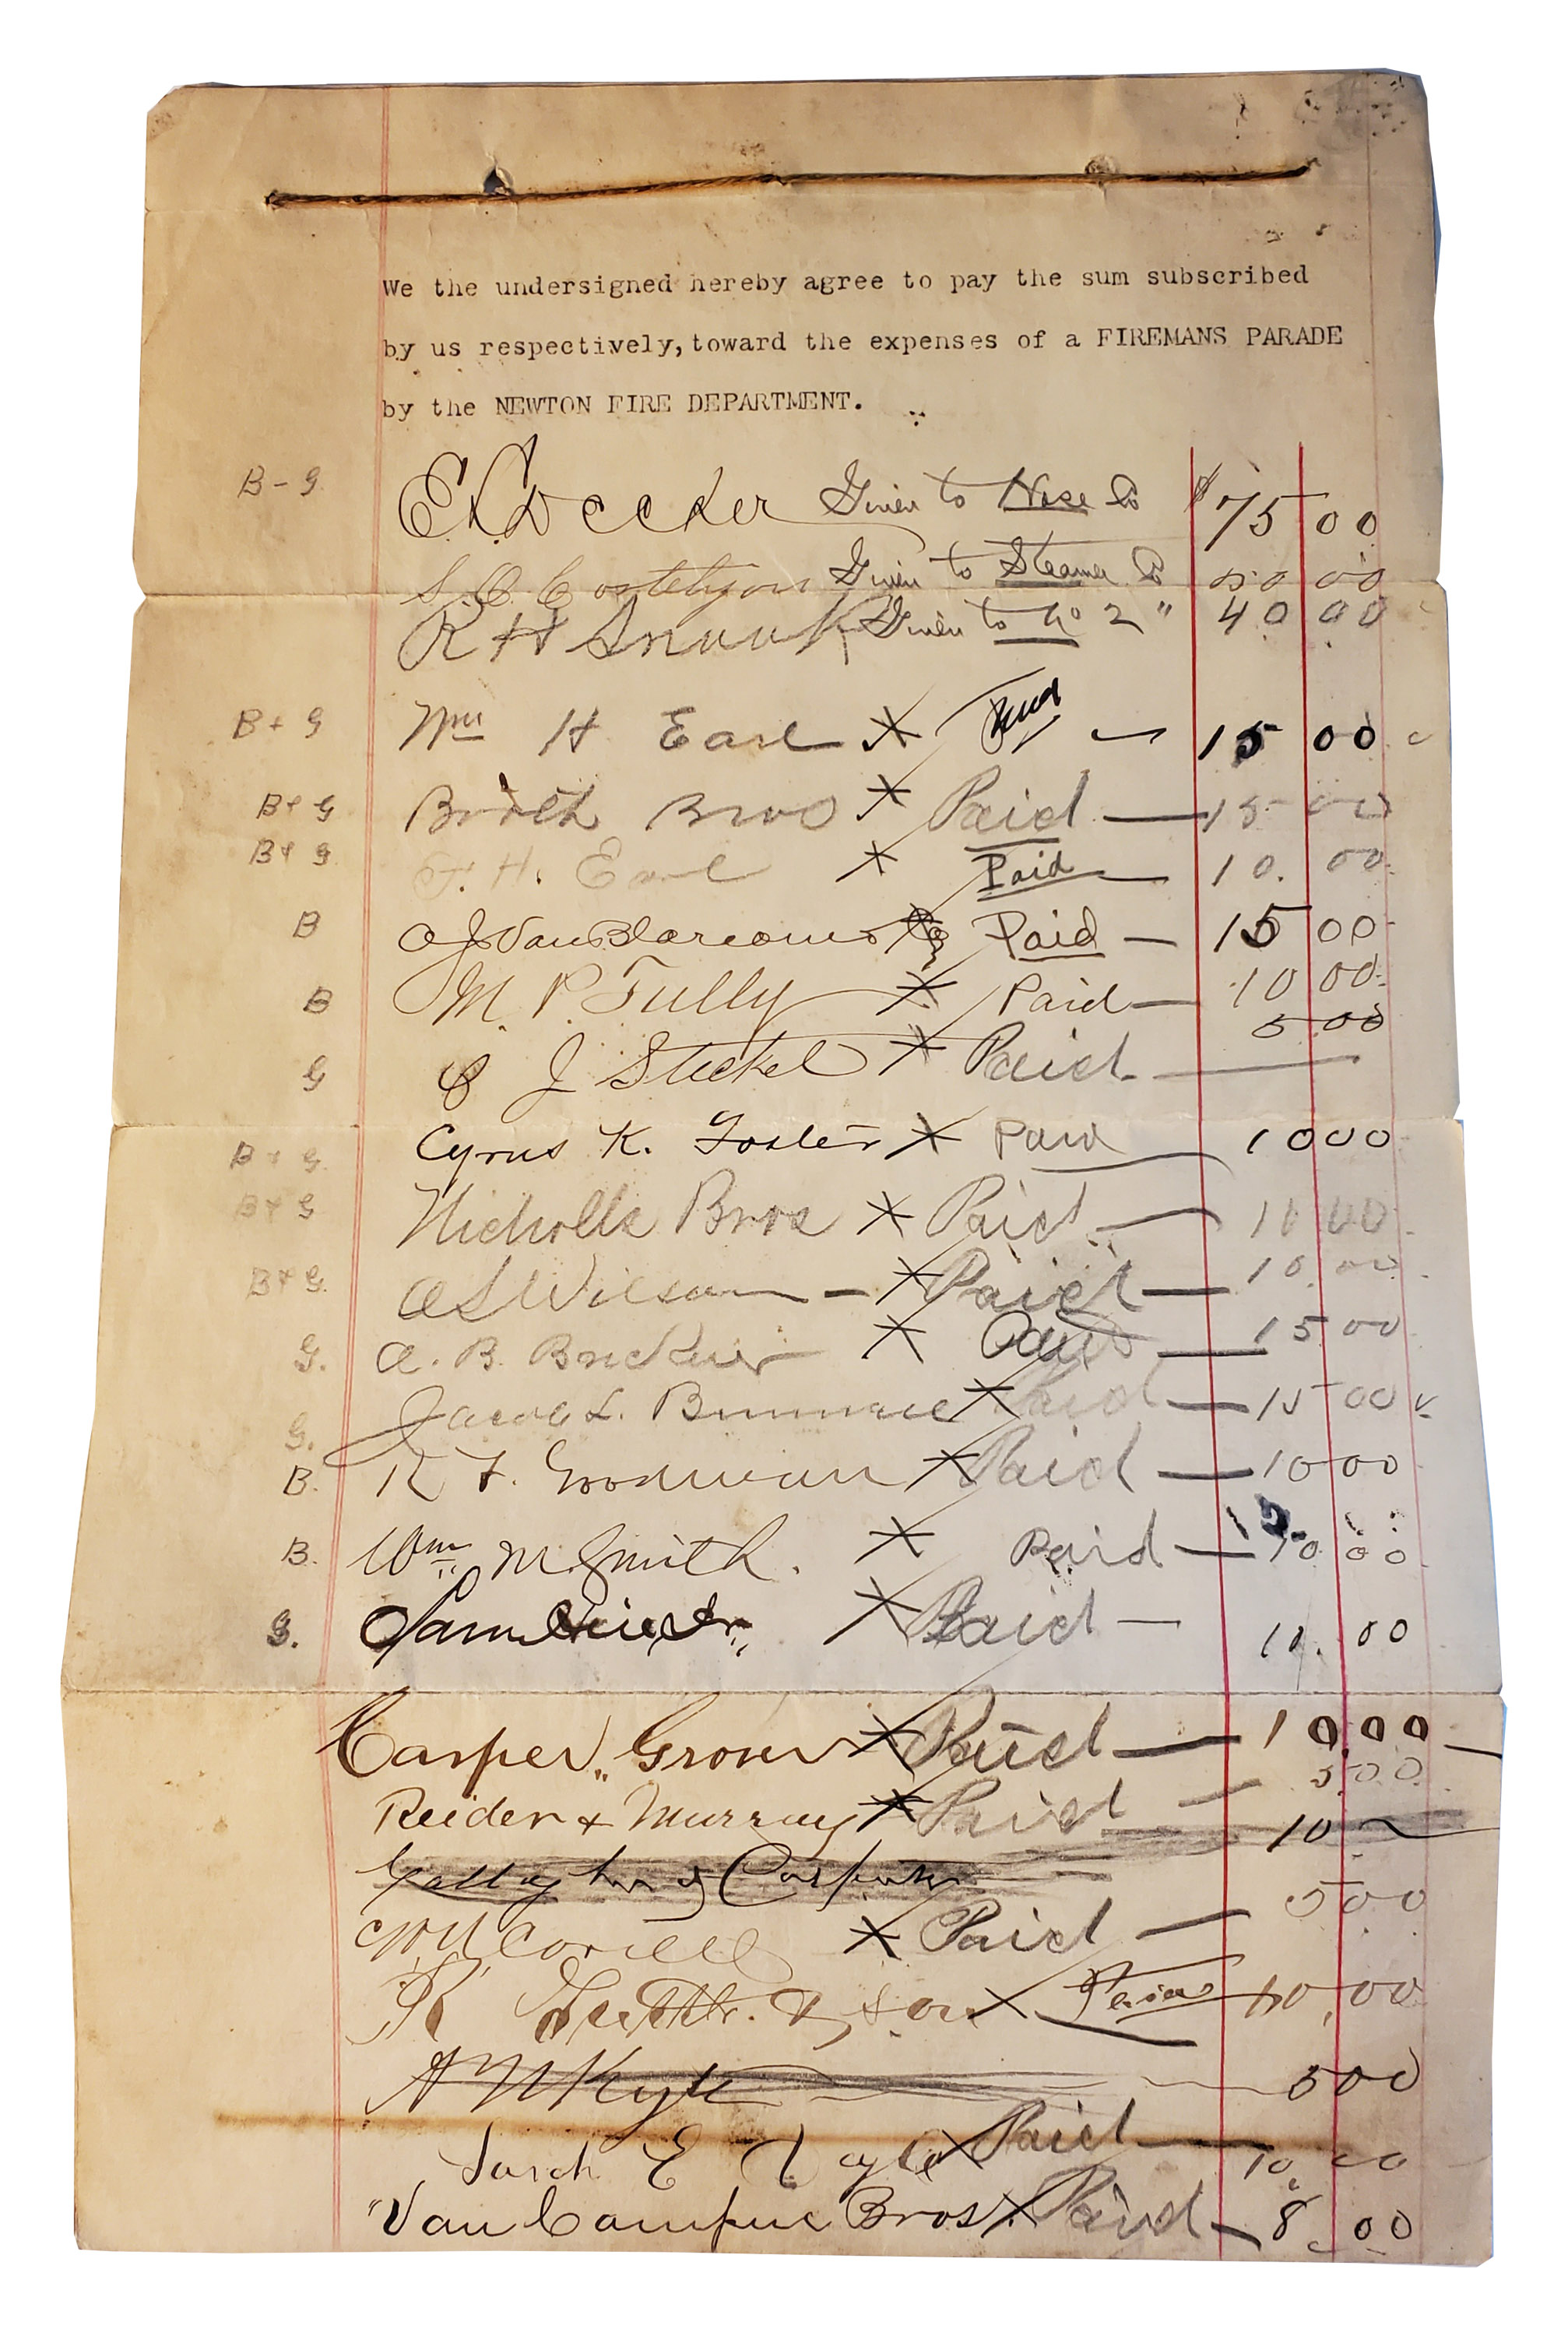 We the undersigned hereby agree to pay the sum subscribed
by us respectively, toward the expenses of a FIREMANS PARADE
by the NEWTON FIRE DEPARTMENT.
B - G Given to Hose Co $75 00
Given to Steamer Co 50 00
R H Snook Given to No 2 " 40 00
B + G Wm H Earl X Paid 15 00
B + G Bros X Paid — 15 00
B + G F. H. Earl X Paid — 10. 00
B O J Van Blarcom Paid — 15 00
B M. P. Tully X Paid — 10 00
G J Stickel X Paid 5 00
B + G Cyrus K. Foster X Paid 10 00
B + G Nicholls Bros X Paid — 10 00
B + G. A S Wilson — X Paid — 10.00
G. A. B. X Paid — 15 00
G. Jacob L. X Paid — 15 00
B. R F. Goodman X Paid — 10 00
B. Wm M Smith. X Paid — 10 00
G. X Paid — 10. 00
Casper X Paid — 10 00
Reider + Murray X Paid — 5 00
10
X Paid — 5 00
& Son X Paid 10.00
5 00
Sarah E X Paid — 10. 00
Van Campen Bros. X Paid — 8 00